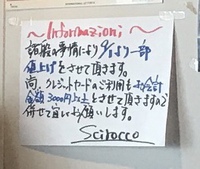 ～Informazioni～
諸般の事情により6/1より一部
値上げをさせて頂きます。
尚、クレジットカードのご利用もお会計
金額3000円以上とさせて頂きますので
併せて宜しくお願いします。
Scirocco